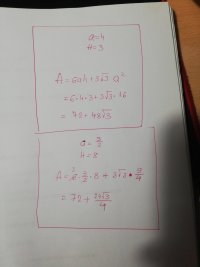 a=4
H=3
A = 6ah + 3√3 a²
= 6·4·3 + 3√3 · 16
= 72 + 48√3
a = 3/2
h = 8
A = 6 · 3/2 · 8 + 3√3 · 9/4
= 72 + 27√3/4